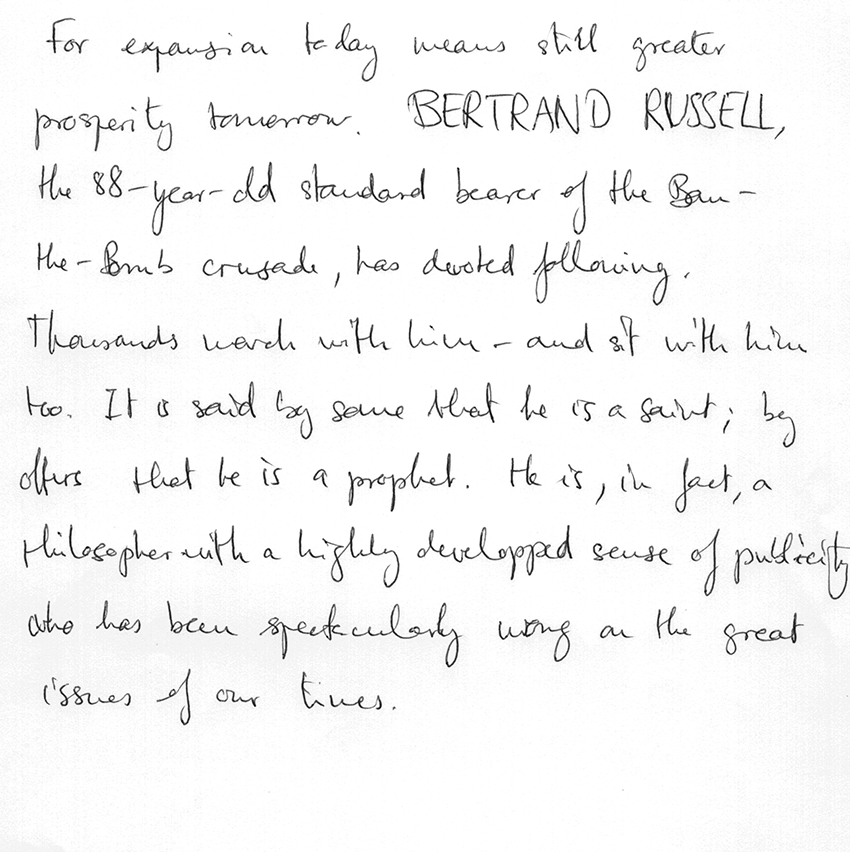 For expansion today means still greater
prosperity tomorrow. BERTRAND RUSSELL,
the 88-year-old standard bearer of the Ban-
the-Bomb crusade, has devoted following.
Thousands march with him - and sit with him
too. It is said by some that he is a saint; by
others that he is a prophet. He is, in fact, a
philosopher with a highly developped sense of publicity
who has been spectacularly wrong on the great
issues of our times.